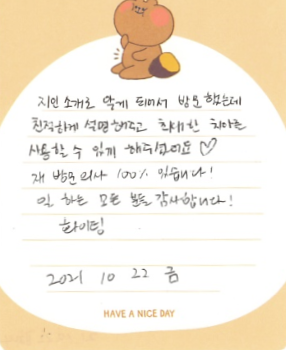 지인 소개로 알게 되어서 방문했는데
친절하게 설명해주고 최대한 치아를
사용할 수 있게 해주셨어요♡
재 방문의사 100% 있습니다!
일 하는 모든 분들 감사합니다!
화이팅
2021 10 22 금
HAVE A NICE DAY